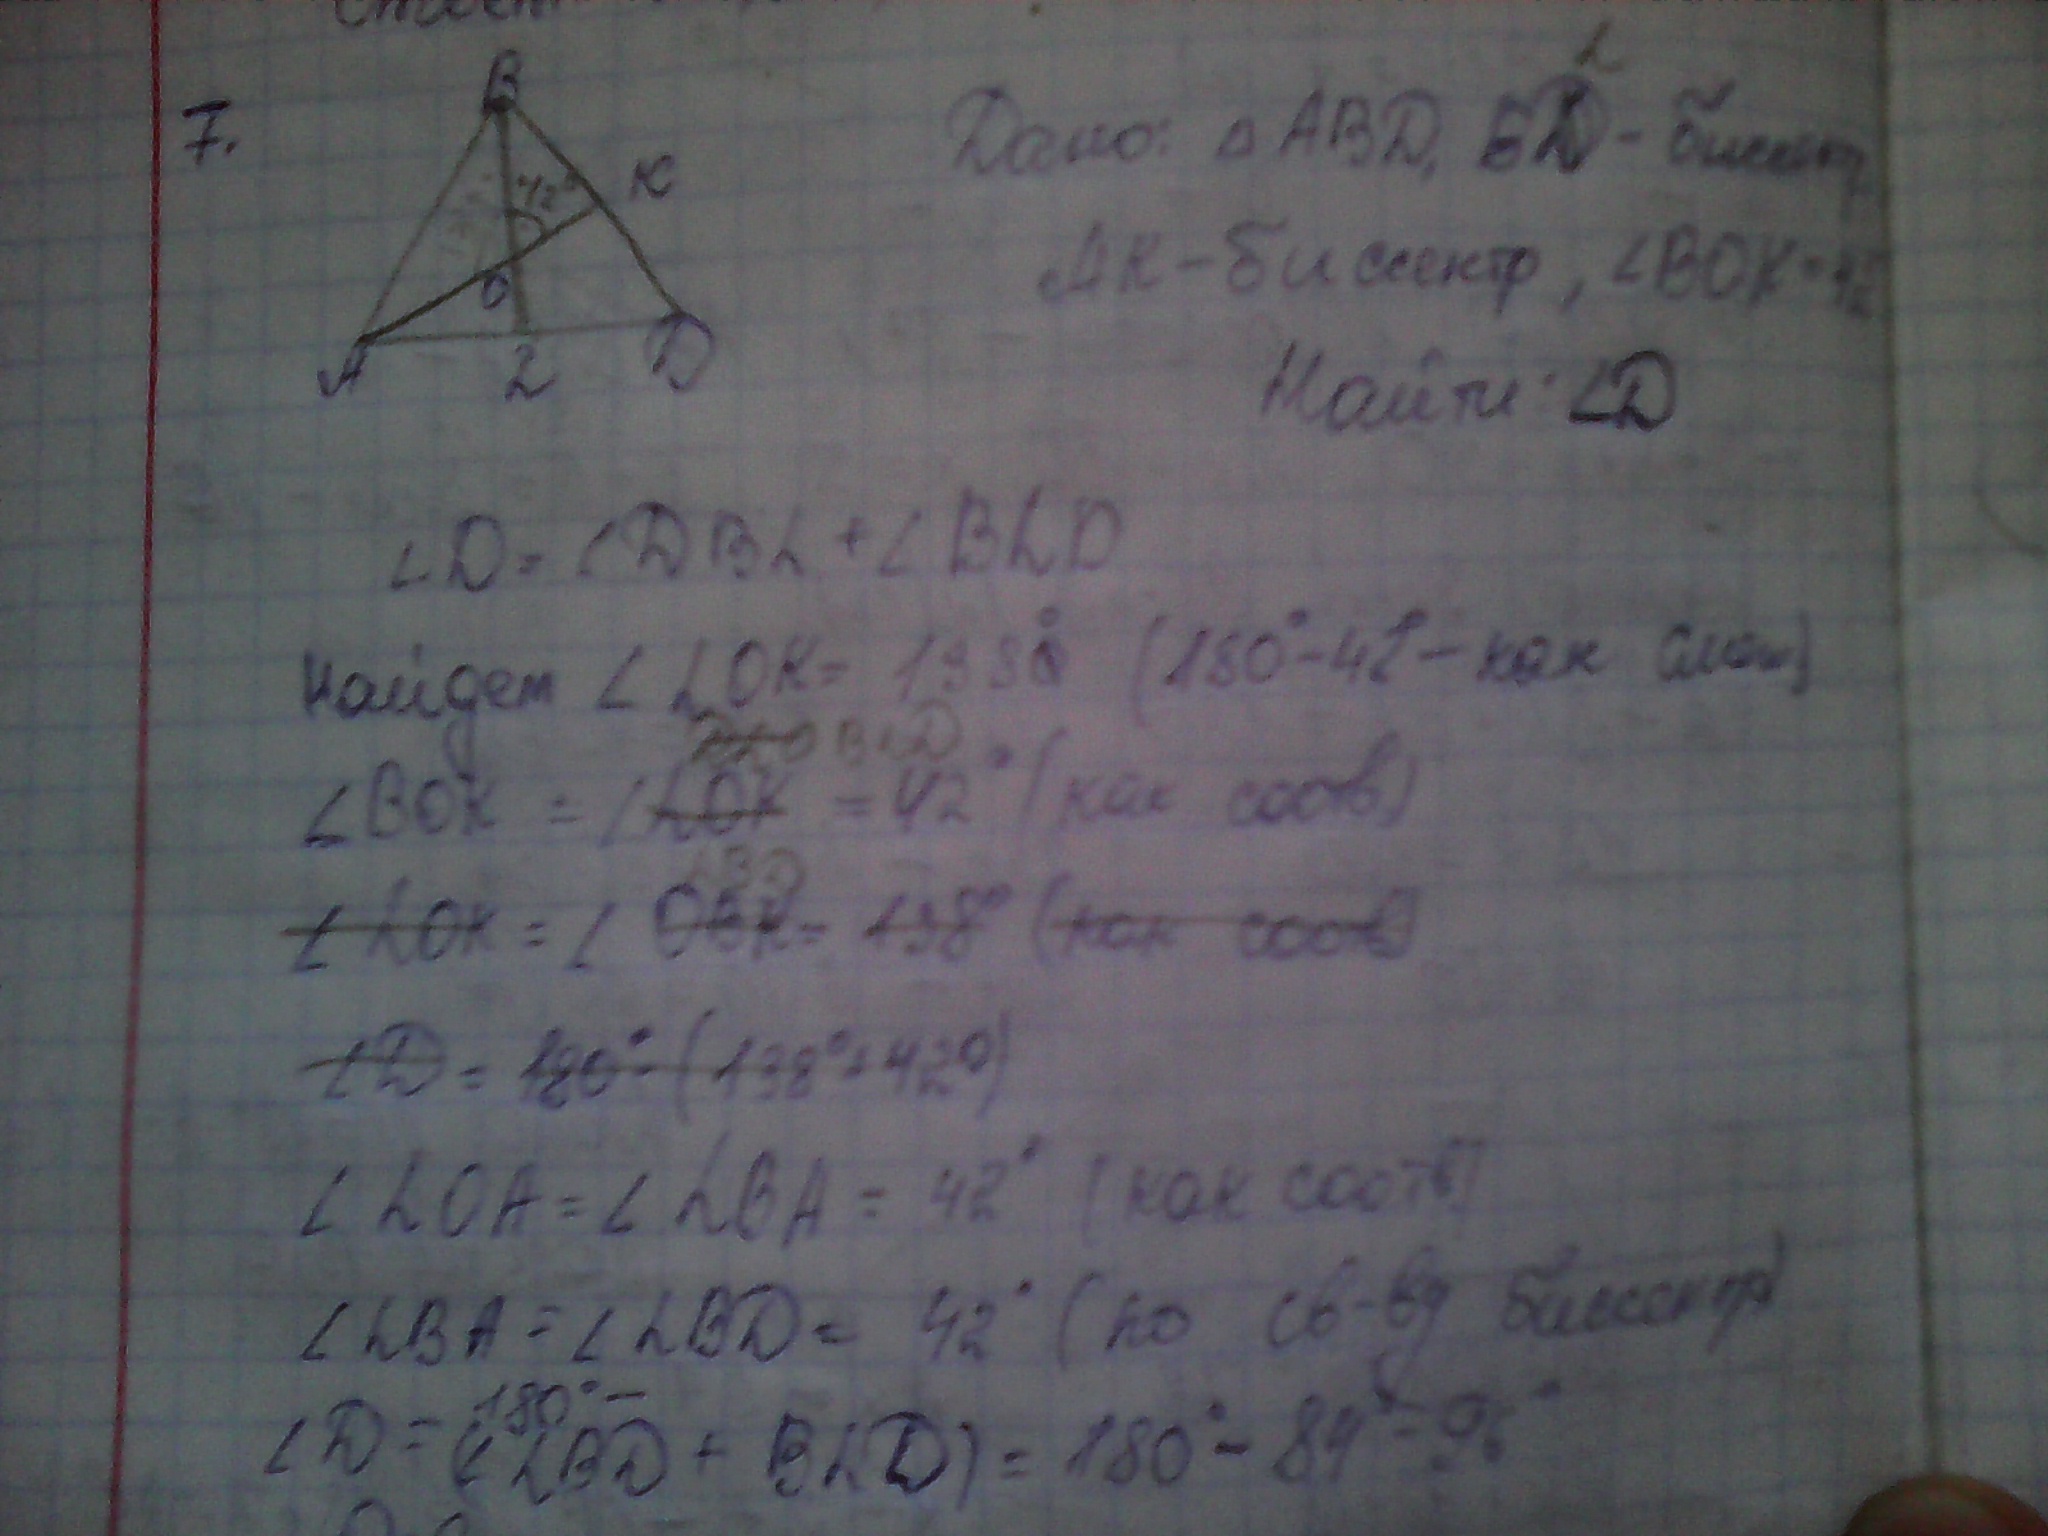 7.
B
42°
K
O
A
L
D
Дано: △ABD, BL - биссектр
AK - биссектр, ∠BOK = 42
Найти: ∠D
∠D = ∠DBL + ∠BLD
Найдем ∠LOK = 138° (180° - 42° - как смеж)
BLD
∠BOK = ∠LOK = 42° (как соотв)
LBD
∠LOK = ∠OBK = 138° (как соотв)
∠D = 180° - (138° + 42°)
∠LOA = ∠LBA = 42° (как соотв)
∠LBA = ∠LBD = 42° (по св-ву биссектр)
∠D = 180° - (∠LBD + BLD) = 180° - 84° = 96°